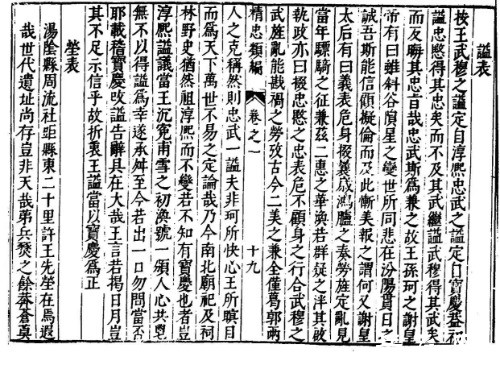 謚表
按王武穆之謚定自淳熙忠武之謚定自寶慶蓋初
謚忠愍得其忠矣而不及其武繼謚武穆得其武矣
而反晦其忠旨哉忠武斯爲兼之故王孫珂之謝皇
帝有曰雖斜谷隕星之變世所同悲在汾陽貫日之
誠吾斯能信顧擬倫而及此慚美報之謂何又謝皇
太后有曰義表危身掇義成鴻臚之奏勞旌定亂見
當年驃騎之征兼茲二惠之華渙若群疑之泮其啟
執政亦曰掇忠愍之忠表危不顧身之行合武穆之
武旌亂能戡禍之勞攷古今二美之兼全僅爲郭兩
精忠類編 卷之一 十九
人之克稱然則忠武一謚夫非珂所快心王所瞑目
而爲天下萬世不易之定論哉乃今南北廟祀及祠
林野史猶然祖淳熙而不變若不知有寶慶也者豈
淳熙謚議當王沉冤甫雪之初渙號一頒人心共慰
無不以得謚爲幸遂承舛至今若出一口勿問當否
耶載稽寶慶改謚告辭具在大哉王言若揭日月豈
其不足示信乎故折衷王謚當以寶慶爲正
塋表
湯陰縣周流社距縣東二十里許王先塋在焉遐
哉世代遺址尚存豈非天哉第兵燹之餘莽蒼眞